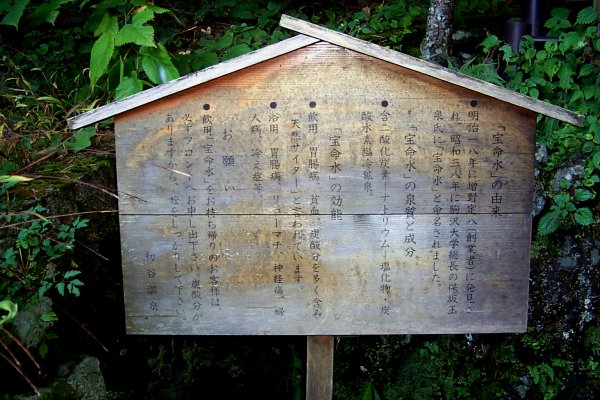 「宝命水」の由来
●明治一八年に増野定八(創業者)に発見さ
れ、昭和三八年に駒沢大学総長の保坂玉
泉氏に"宝命水"と命名されました。
「宝命水」の泉質と成分
●含二酸化炭素ーナトリウム―塩化物・炭
酸水素塩冷鉱泉。
「宝命水」の効能
●飲用 胃腸病、貧血、炭酸分を多く含み
「天然サイダー」と言われています。
●浴用 胃腸病、リューマチ、神経痛、婦
人病、冷え症等。
お願い
●飲用"宝命水"をお持ち帰りのお客様は、
必ずフロントへお申し出下さい。炭酸分が
ありますから、栓をしっかりして下さい。
初谷温泉